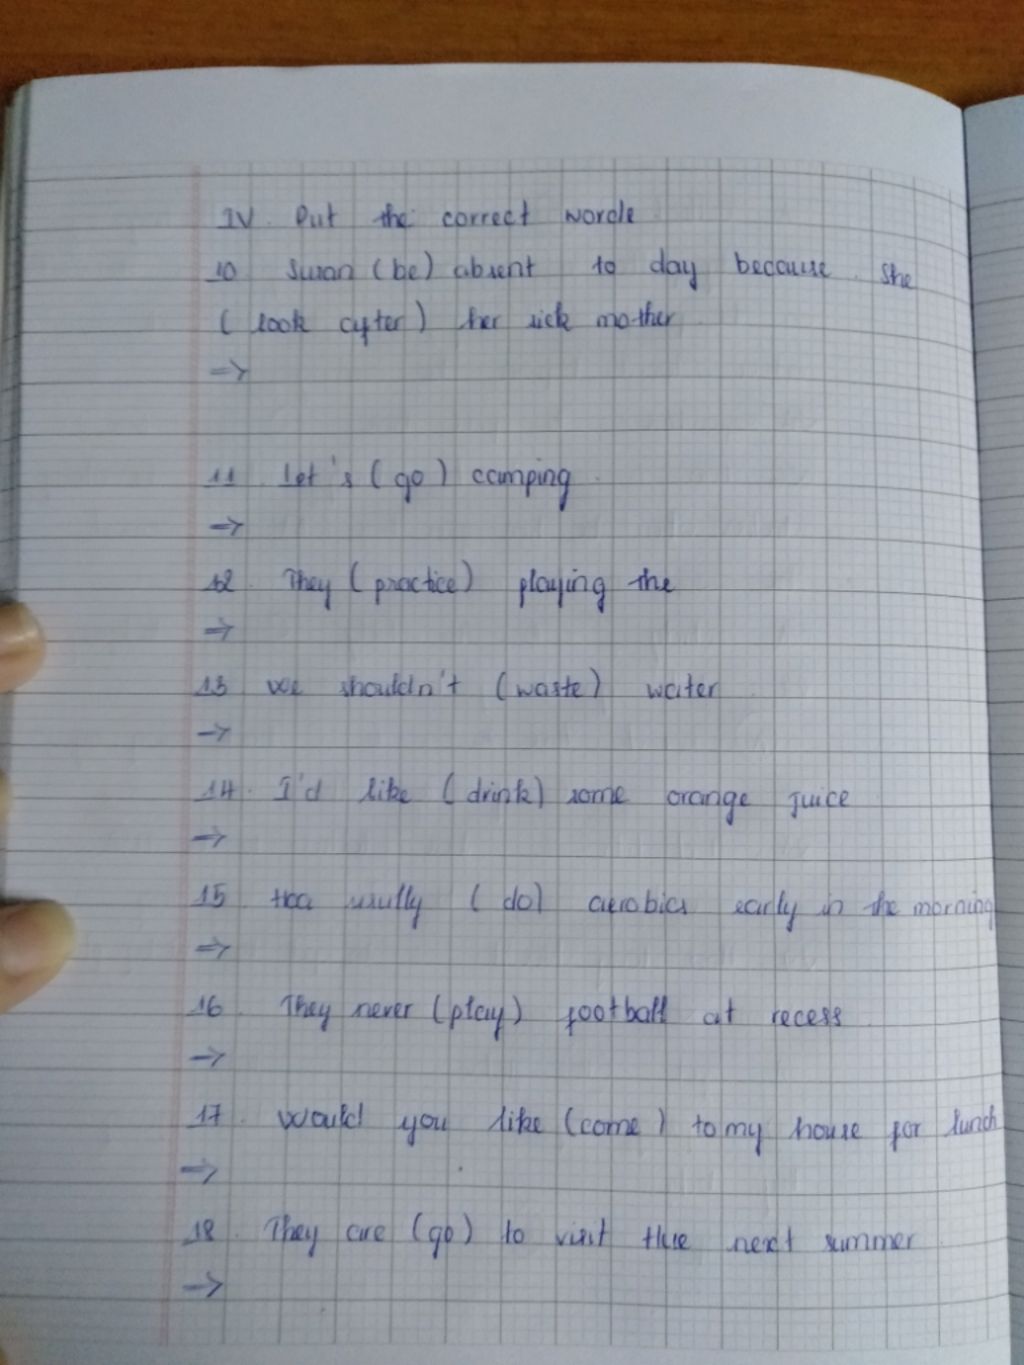 IV. Put the correct words
10 Susan (be) absent to day because she
( look after ) her sick mother
=>
11 Let's ( go ) camping.
=>
12. They ( practice ) playing the
=>
13 we shouldn't ( waste ) water
=>
14. I'd like ( drink ) some orange juice
=>
15 Hoa usully ( do ) aerobics early in the morning
=>
16 They never (play) football at recess
=>
17. Would you like (come ) to my house for lunch
=>
18. They are (go) to visit Hue next summer
=>